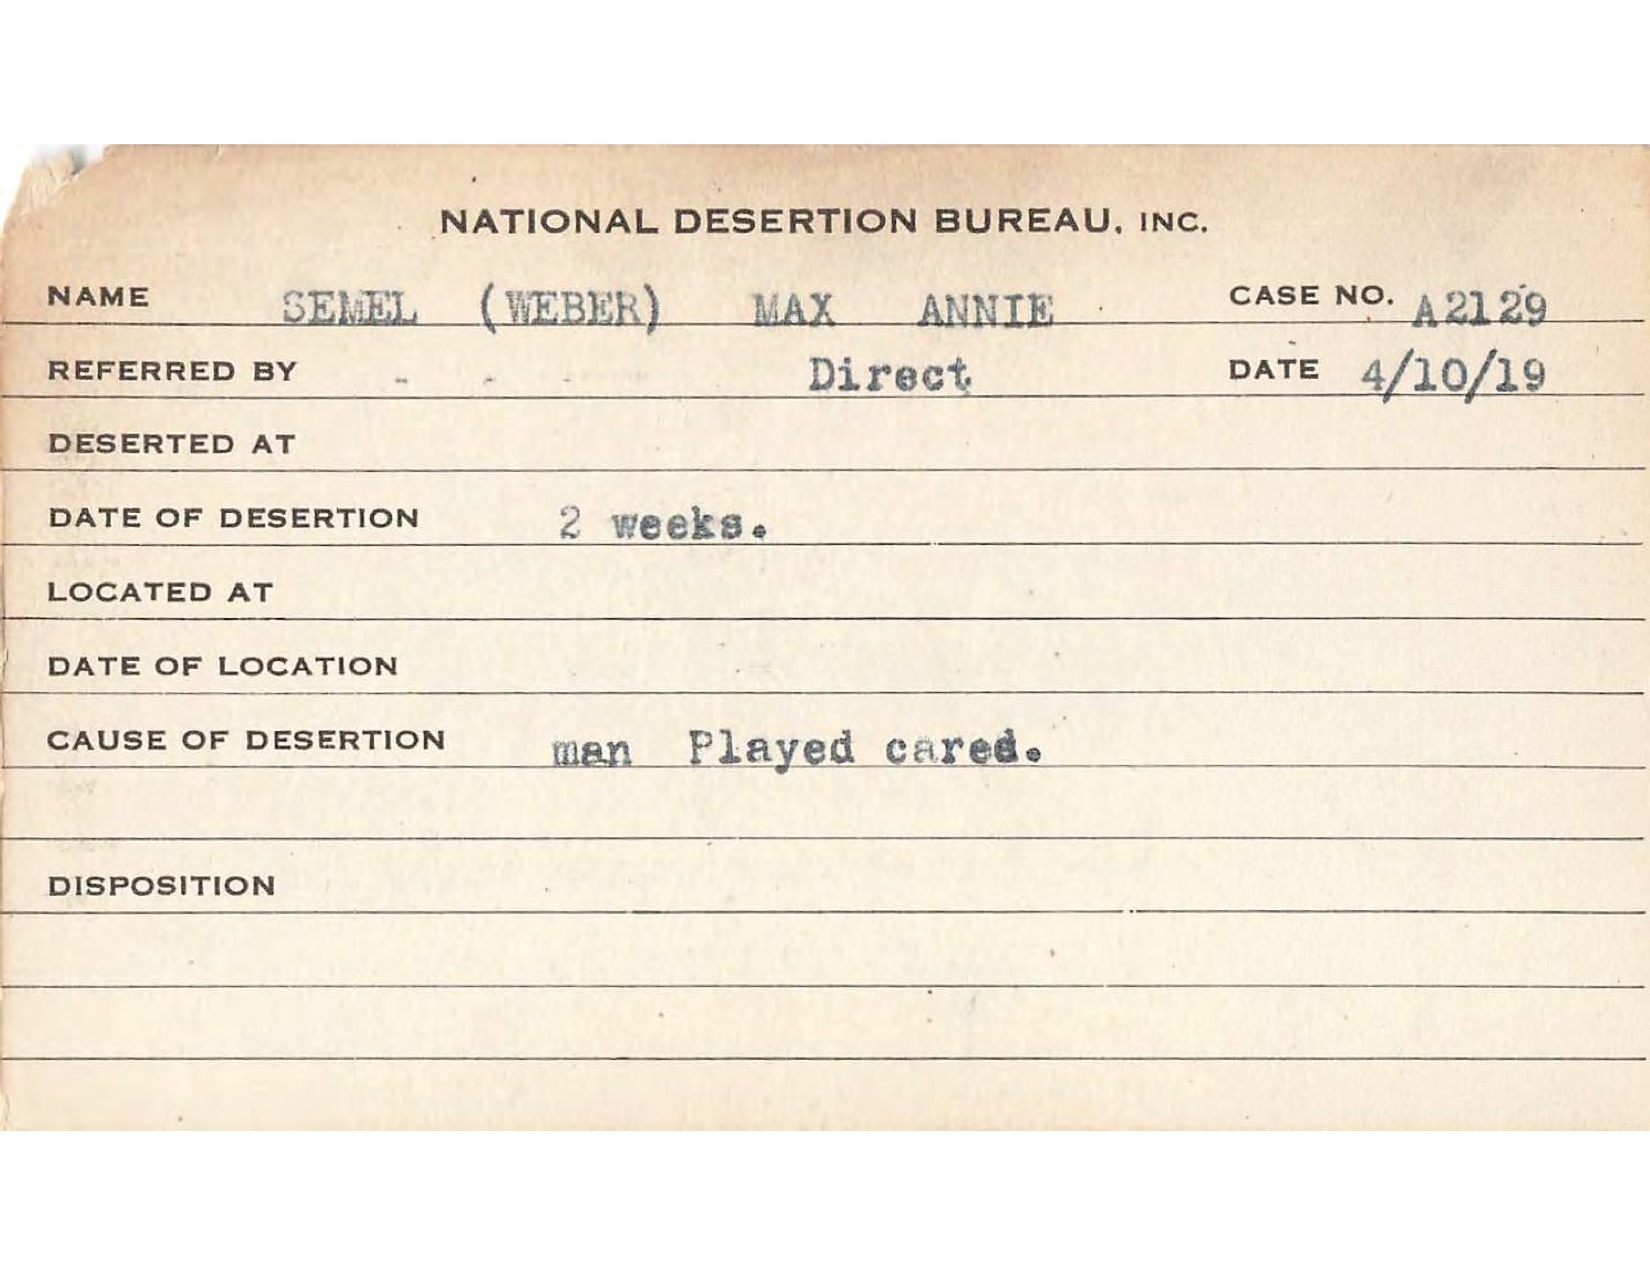 NATIONAL DESERTION BUREAU, INC.
NAME SEMEL (WEBER) MAX ANNIE CASE NO. A2129
REFERRED BY Direct DATE 4/10/19
DESERTED AT
DATE OF DESERTION 2 weeks.
LOCATED AT
DATE OF LOCATION
CAUSE OF DESERTION man Played cared.
DISPOSITION